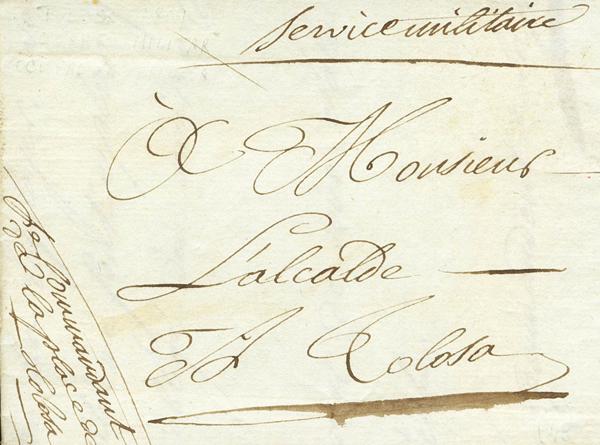 Service militaire
À Monsieur
L'alcalde
À Tolosa
Le Commandant
de la place de
Tolosa